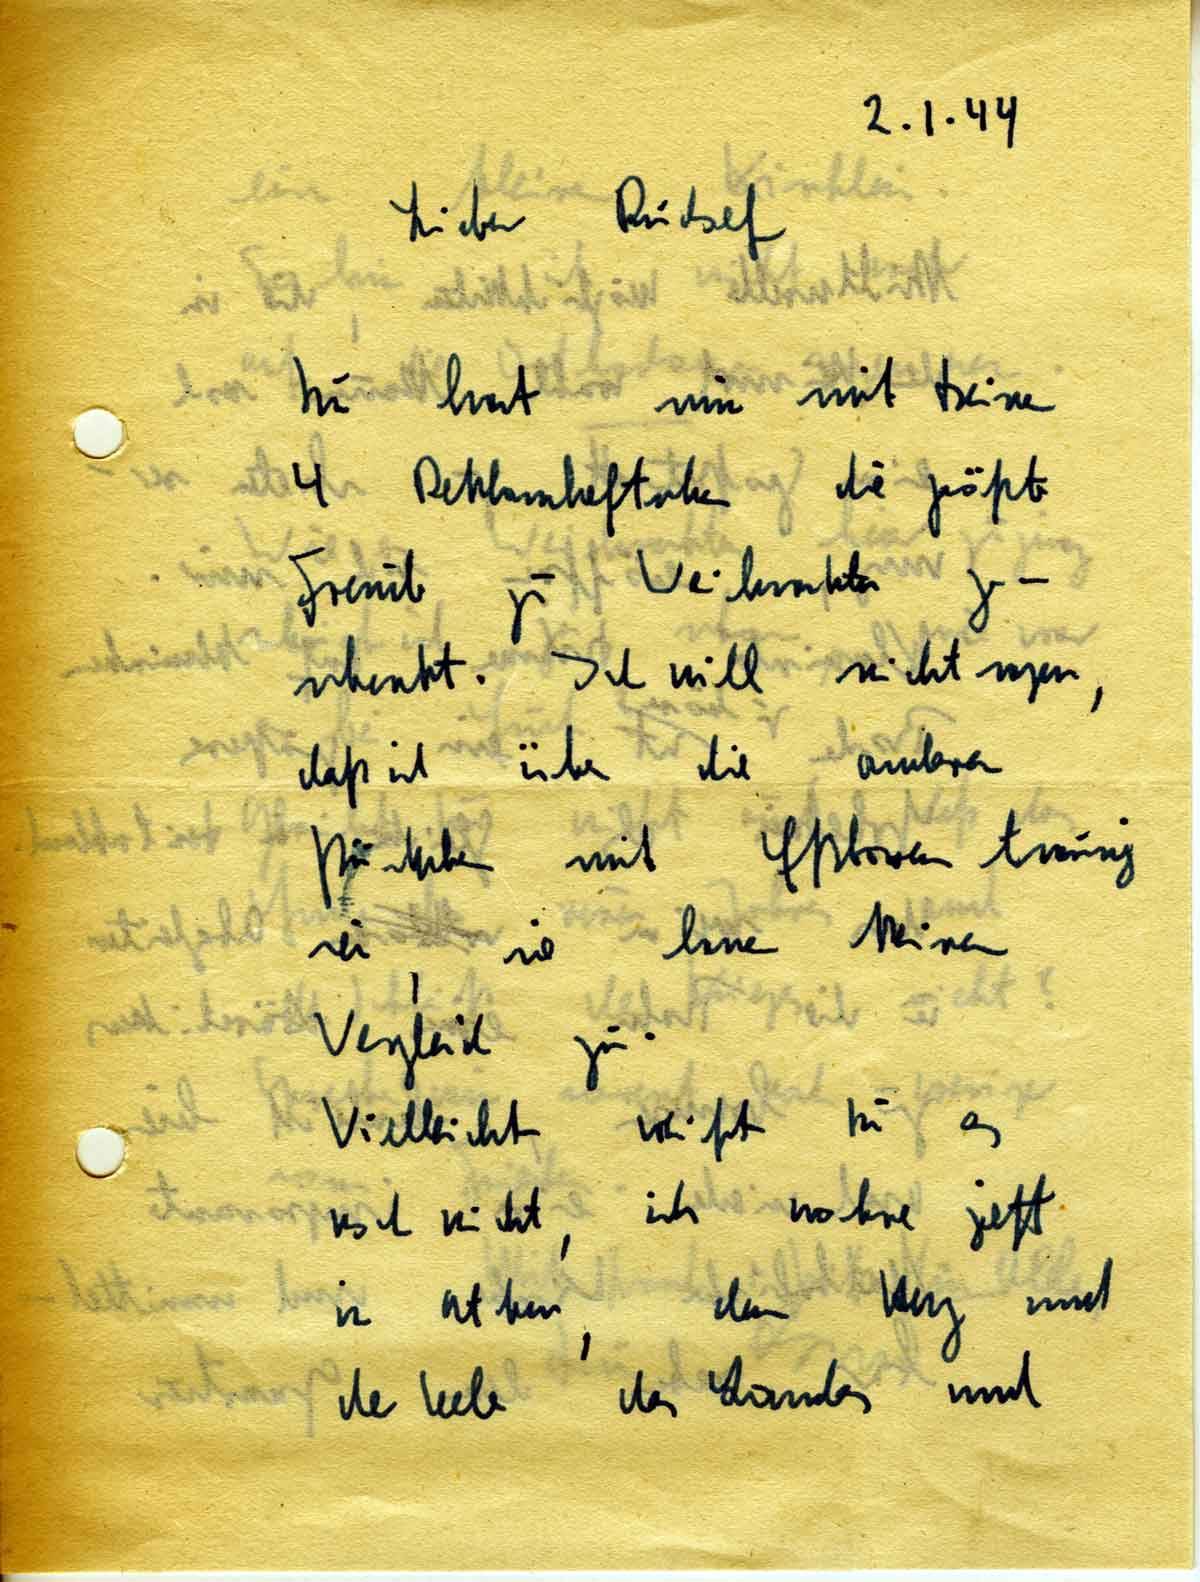 2.1.44
Lieber Rudolf
Du hast mir mit Deinen
4 Reklamheftchen die größte
Freude zu Weihnachten ge-
schenkt. Ich will nicht sagen,
daß ich über die anderen
Päckchen mit Eßwaren traurig
sei, sie lassen keinen
Vergleich zu.
Vielleicht weißt Du es
noch nicht, ich wohne jetzt
in Athen, dem Herz und
der Seele des Landes und